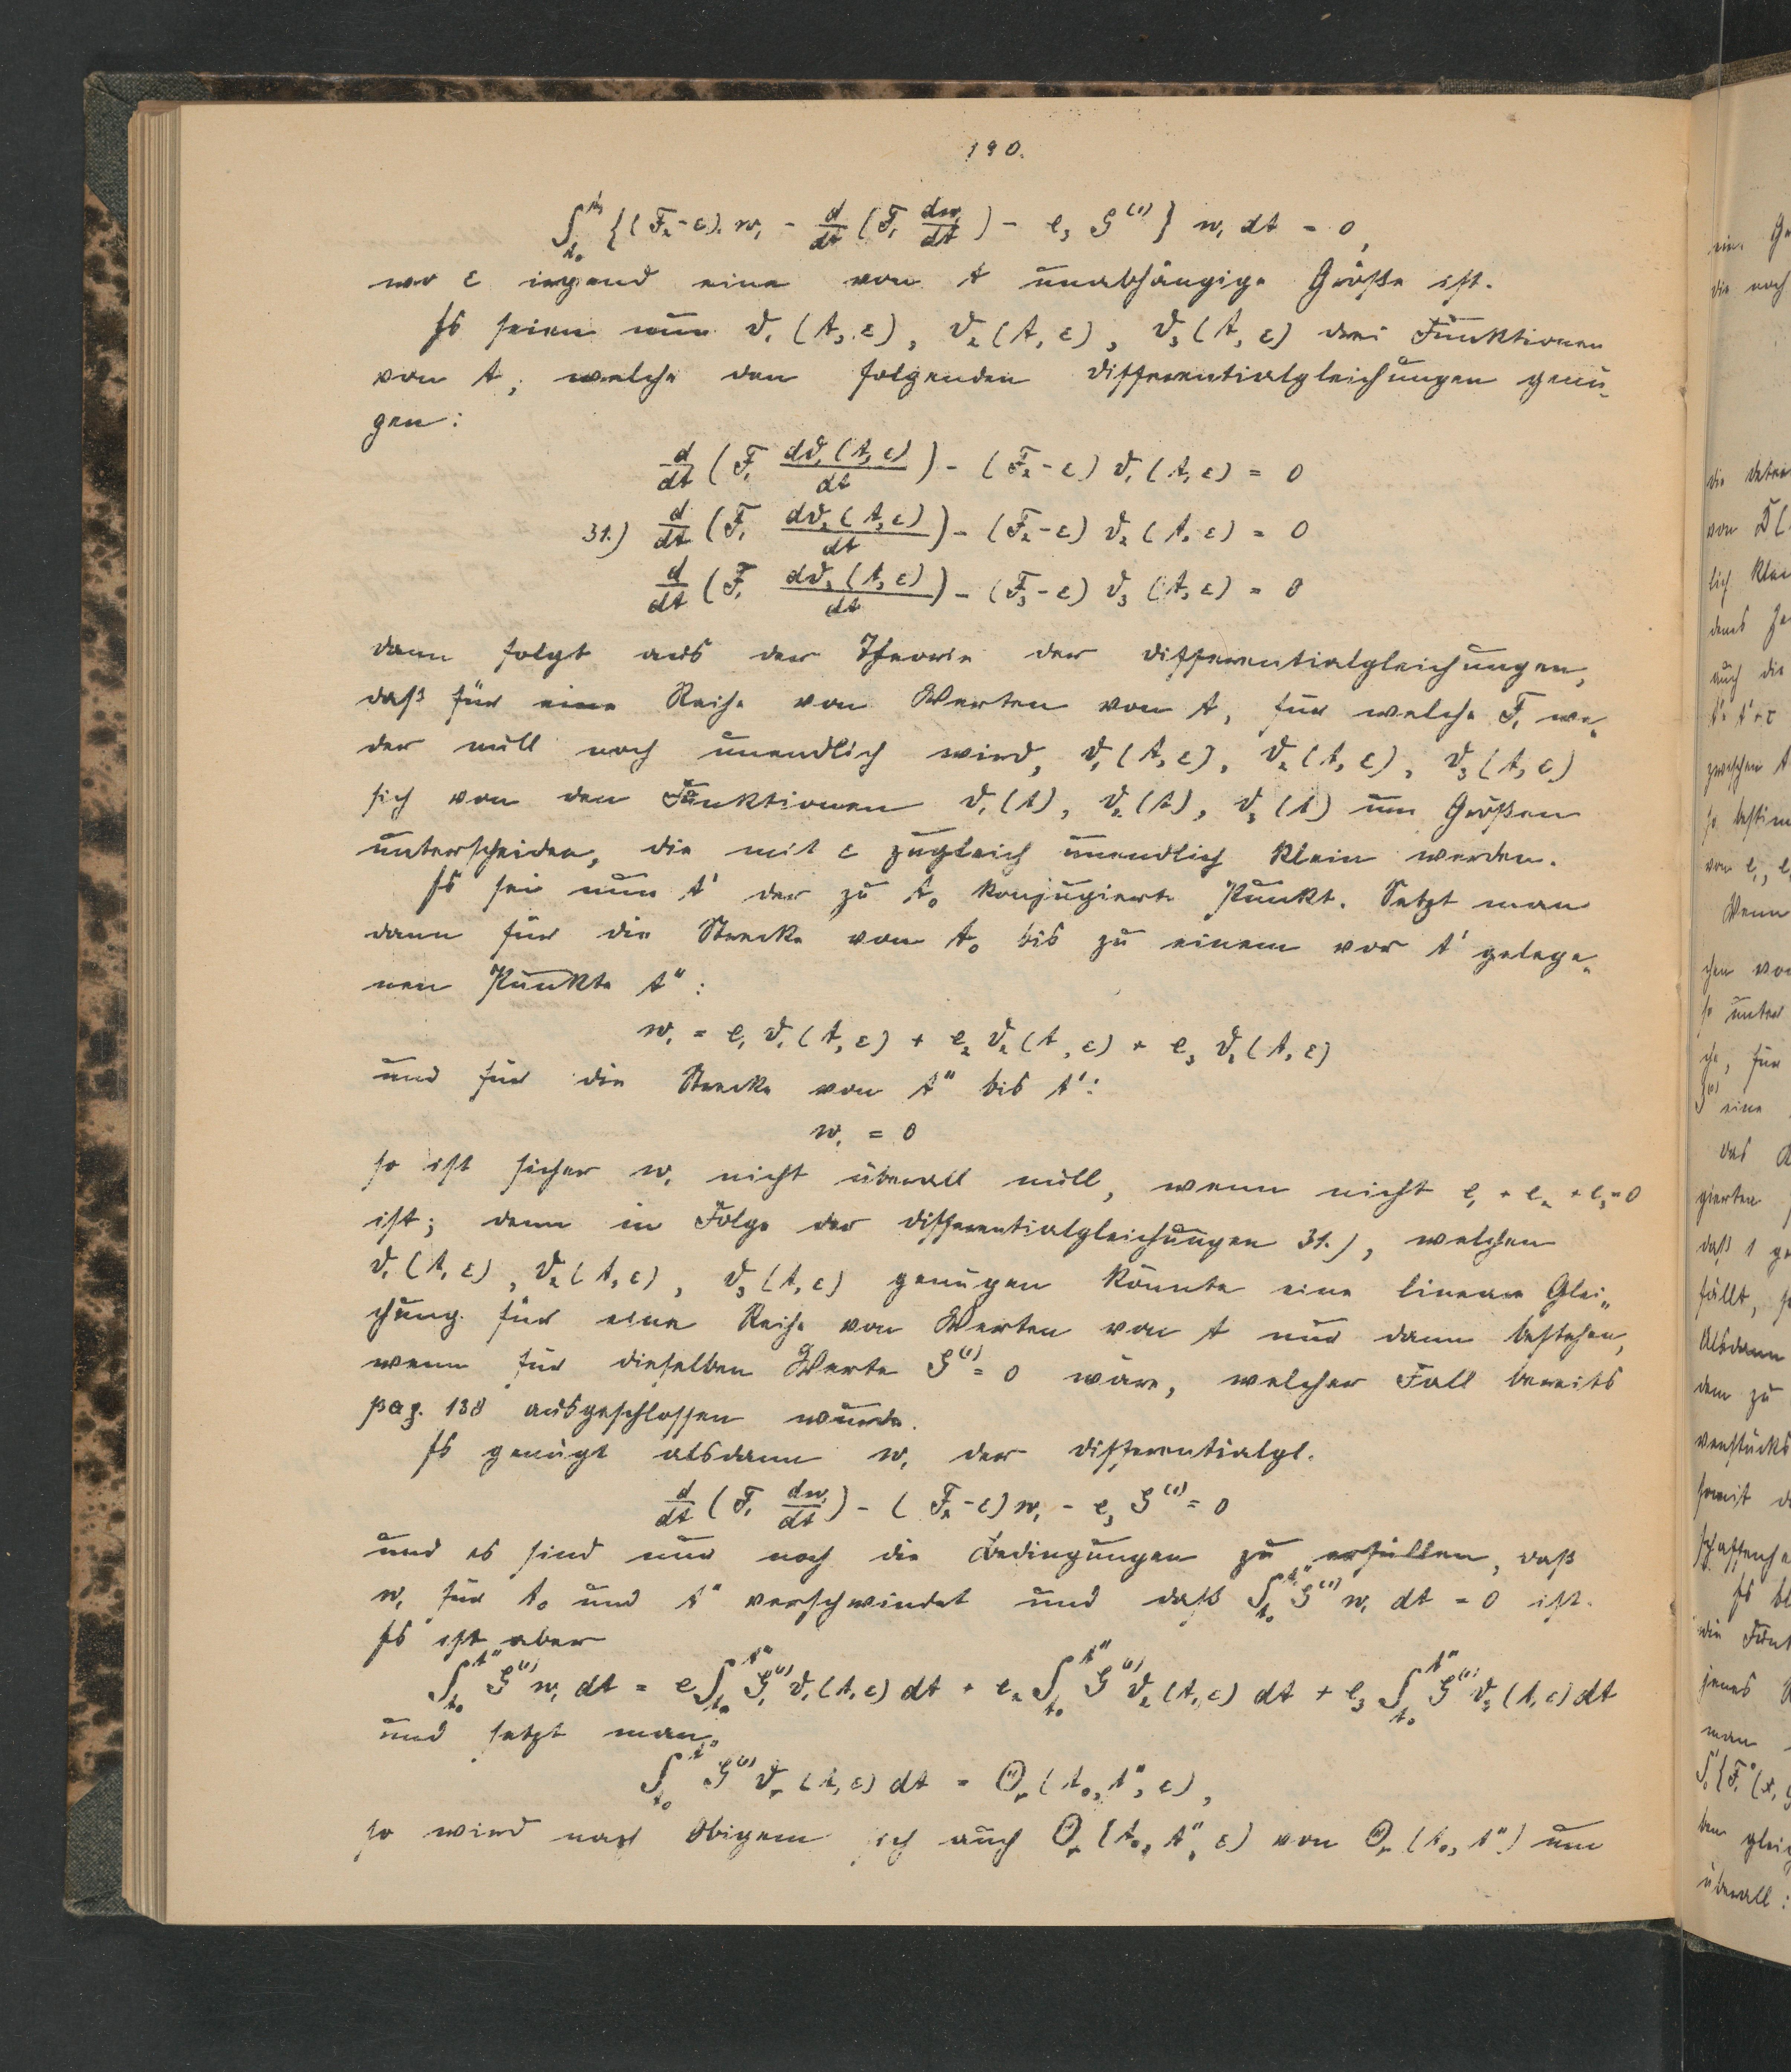 190.
∫_{t₀}^{t₁} {(F₂-ε).w₁ - d/dt (F₁ dw₁/dt) - e₃ G⁽¹⁾} w₁ dt = 0,
wo ε irgend eine von t unabhängige Größe ist.
Es seien nun ϑ₁(t,ε), ϑ₂(t,ε), ϑ₃(t,ε) drei Funktionen
von t, welche den folgenden Differentialgleichungen genü-
gen:
d/dt (F₁ dϑ₁(t,ε)/dt) - (F₂-ε) ϑ₁(t,ε) = 0
31.) d/dt (F₁ dϑ₂(t,ε)/dt) - (F₂-ε) ϑ₂(t,ε) = 0
d/dt (F₁ dϑ₃(t,ε)/dt) - (F₃-ε) ϑ₃(t,ε) = 0
dann folgt aus der Theorie der Differentialgleichungen,
daß für eine Reihe von Werten von t, für welche F₁ we-
der null noch unendlich wird, ϑ₁(t,ε), ϑ₂(t,ε), ϑ₃(t,ε)
sich von den Funktionen ϑ₁(t), ϑ₂(t), ϑ₃(t) um Größen
unterscheiden, die mit ε zugleich unendlich klein werden.
Es sei nun t' der zu t₀ konjugierte Punkt. Setzt man
dann für die Strecke von t₀ bis zu einem vor t' gelege-
nen Punkte t'':
w₁ = e₁ ϑ₁(t,ε) + e₂ ϑ₂(t,ε) + e₃ ϑ₃(t,ε)
und für die Strecke von t'' bis t':
w₁ = 0
so ist sicher w₁ nicht überall null, wenn nicht e₁ + e₂ + e₃ = 0
ist; denn in Folge der Differentialgleichungen 31.), welchen
ϑ₁(t,ε), ϑ₂(t,ε), ϑ₃(t,ε) genügen könnte eine lineare Glei-
chung für eine Reihe von Werten von t nur dann bestehen,
wenn für dieselben Werte G⁽¹⁾ = 0 wäre, welcher Fall bereits
pag. 138 ausgeschlossen wurde.
Es genügt alsdann w₁ der Differentialgl.
d/dt (F₁ dw₁/dt) - (F₂-ε) w₁ - e₃ G⁽¹⁾ = 0
und es sind nur noch die Bedingungen zu erfüllen, daß
w₁ für t₀ und t'' verschwindet und daß ∫_{t₀}^{t''} G⁽¹⁾ w₁ dt = 0 ist.
Es ist aber
∫_{t₀}^{t''} G⁽¹⁾ w₁ dt = e₁ ∫_{t₀}^{t''} G⁽¹⁾ ϑ₁(t,ε) dt + e₂ ∫_{t₀}^{t''} G⁽¹⁾ ϑ₂(t,ε) dt + e₃ ∫_{t₀}^{t''} G⁽¹⁾ ϑ₃(t,ε) dt
und setzt man
∫_{t₀}^{t''} G⁽¹⁾ ϑᵣ(t,ε) dt = Θᵣ(t₀, t'', ε),
so wird nach Obigem sich auch Θᵣ(t₀, t'', ε) von Θᵣ(t₀, t'') um